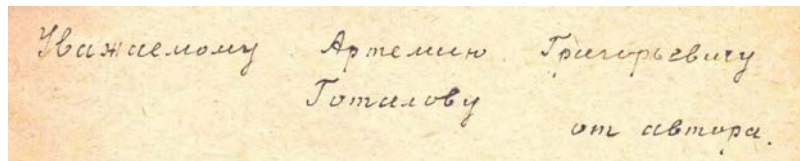 Уважаемому Артемию Григорьевичу
Готалову
от автора.